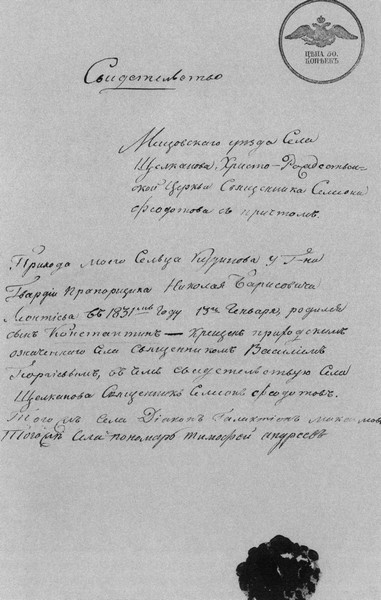 ЦѢНА 30.
КОПѢЕКЪ
Свидетельство
Мещовскаго уѣзда Села
Щелканова, Христо-Рождествен-
ской Церкви Священника Симиона
Ѳеодотова съ причтомъ.
Прихода моего Сельца Кудинова у Г-на
Гвардіи Прапорщика Николая Барисовича
Леонтіева въ 1831мъ Году 13го Генваря, родился
сынъ Константинъ — Крещенъ приходскимъ
означеннаго Села Священникомъ Василіемъ
въ чемъ свидетельствую Села
Щелканова Священникъ Симеонъ Ѳеодотовъ.
Тогожъ Села Діаконъ Галактіонъ
Тогожъ Села пономарь тимофей андреевъ